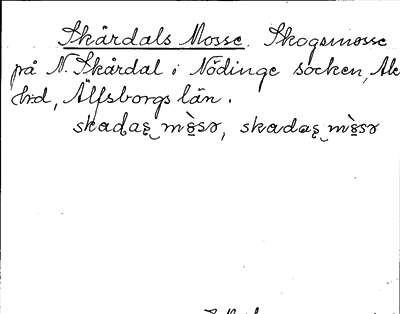 Skårdals Mosse. Skogsmosse
på N. Skårdal i Nödinge socken, Ale
hd, Älfsborgs län.
skadas̨ mòsə, skadas̨ mòsə